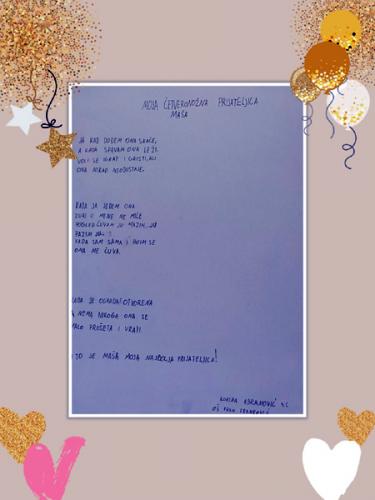 MOJA ČETVERONOŽNA PRIJATELJICA
MAŠA
JA KAD DOĐEM ONA SKAČE,
A KADA SPAVAM ONA LEŽI.
VOLI SE IGRAT I GRISTI, ALI
ONA NIKAD
KADA JA JEDEM ONA
OD MENE NE MIČE
ČUVAM JU MAZIM, JU
PAZIM JU.
KADA SAM SAMA I BOJIM SE
ONA ME ČUVA.
KADA JE OGRADA OTVORENA
A NEMA NIKOGA ONA SE
MALO PROŠETA I VRATI
TO JE MAŠA MOJA NAJBOLJA PRIJATELJICA!